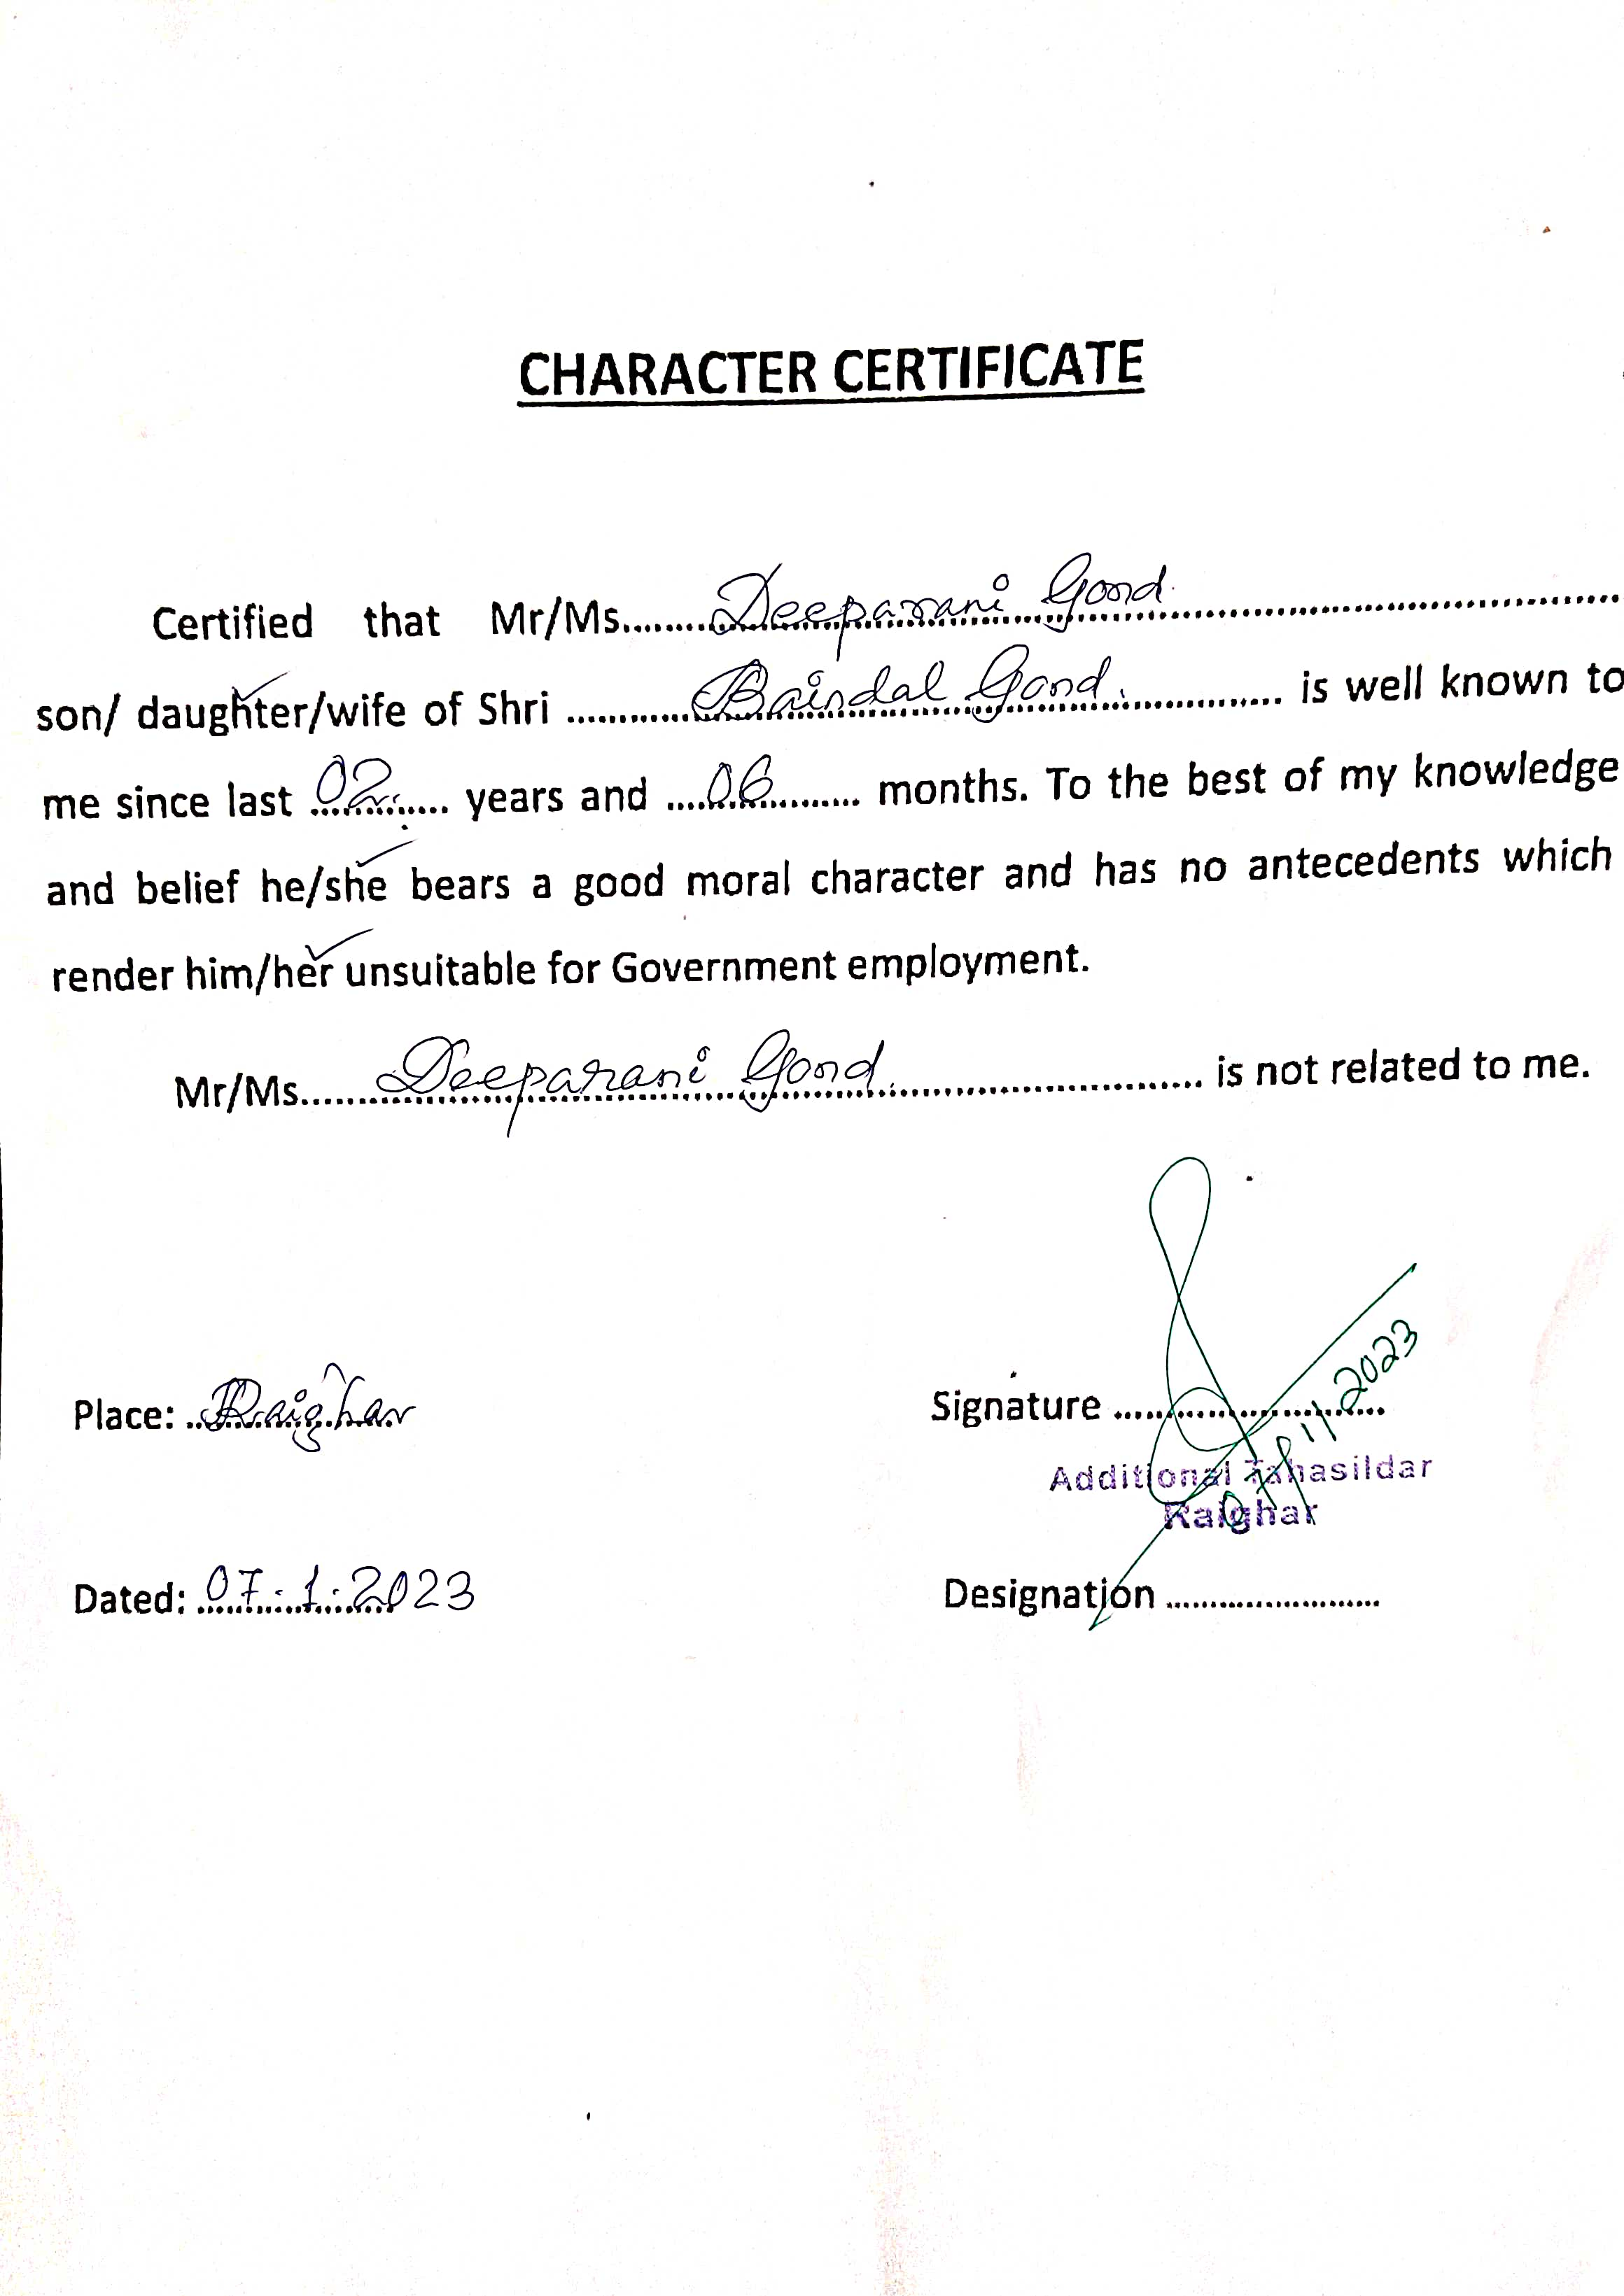 CHARACTER CERTIFICATE
Certified that Mr/Ms..........Deeparani Gond..........
son/ daughter/wife of Shri ..........Baisdal Gond.......... is well known to
me since last ..02...... years and ....06........ months. To the best of my knowledge
and belief he/she bears a good moral character and has no antecedents which
render him/her unsuitable for Government employment.
Mr/Ms..........Deeparani Gond.......... is not related to me.
Place: ..Raighar
Signature ..........
07/1/2023
Additional Tahasildar
Raighar
Dated: 07.1.2023
Designation ..........